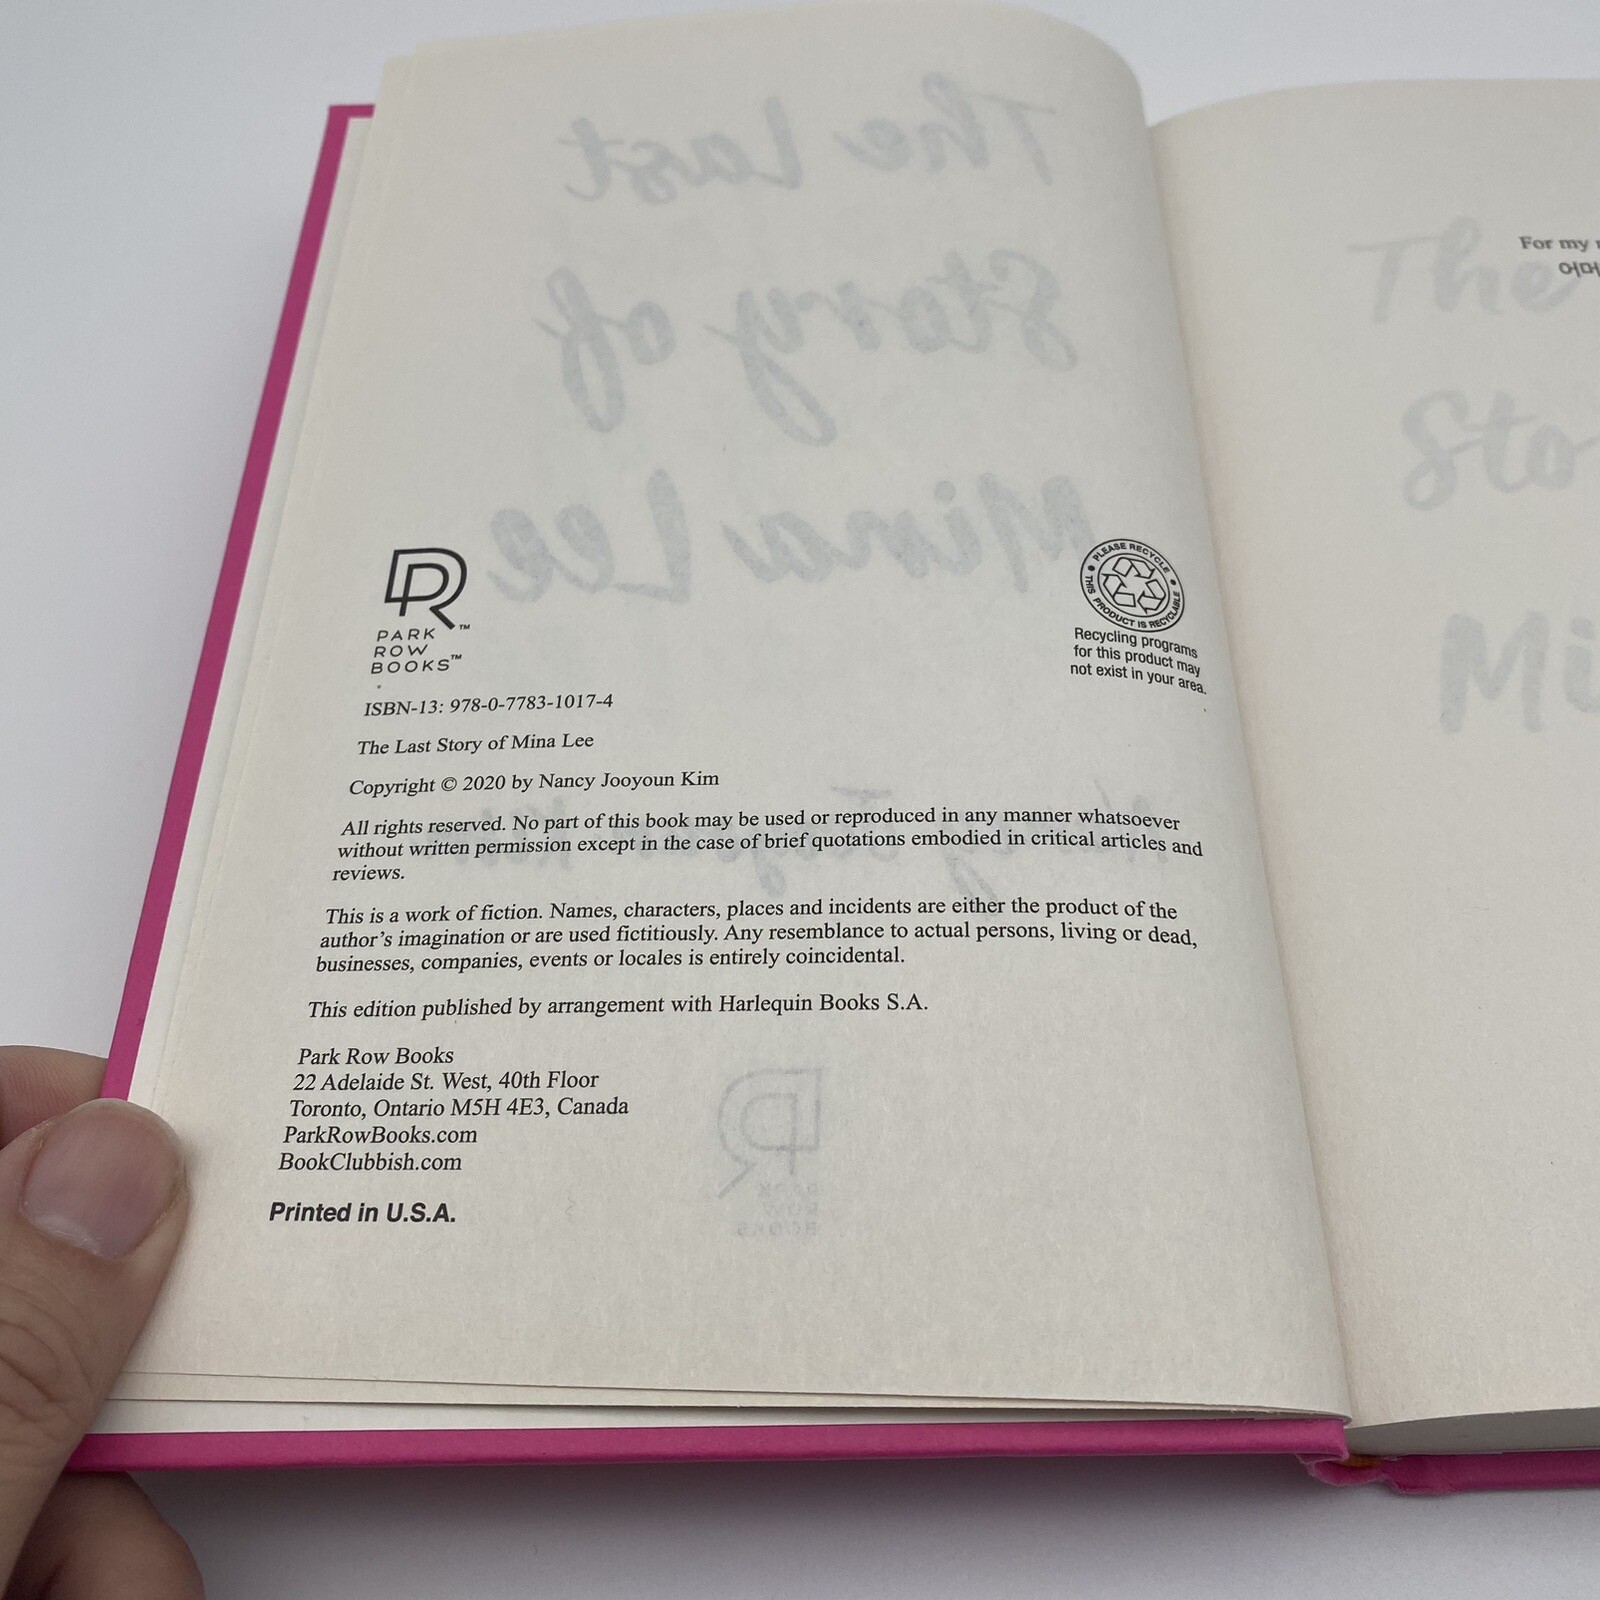 The Last
Story of
Mina Lee
PARK
ROW
BOOKS™
PLEASE RECYCLE
THIS PRODUCT IS RECYCLABLE
Recycling programs
for this product may
not exist in your area.
ISBN-13: 978-0-7783-1017-4
The Last Story of Mina Lee
Copyright © 2020 by Nancy Jooyoun Kim
All rights reserved. No part of this book may be used or reproduced in any manner whatsoever
without written permission except in the case of brief quotations embodied in critical articles and
reviews.
This is a work of fiction. Names, characters, places and incidents are either the product of the
author's imagination or are used fictitiously. Any resemblance to actual persons, living or dead,
businesses, companies, events or locales is entirely coincidental.
This edition published by arrangement with Harlequin Books S.A.
Park Row Books
22 Adelaide St. West, 40th Floor
Toronto, Ontario M5H 4E3, Canada
ParkRowBooks.com
BookClubbish.com
Printed in U.S.A.
PARK
ROW
BOOKS
For my
The
Sto
Mi